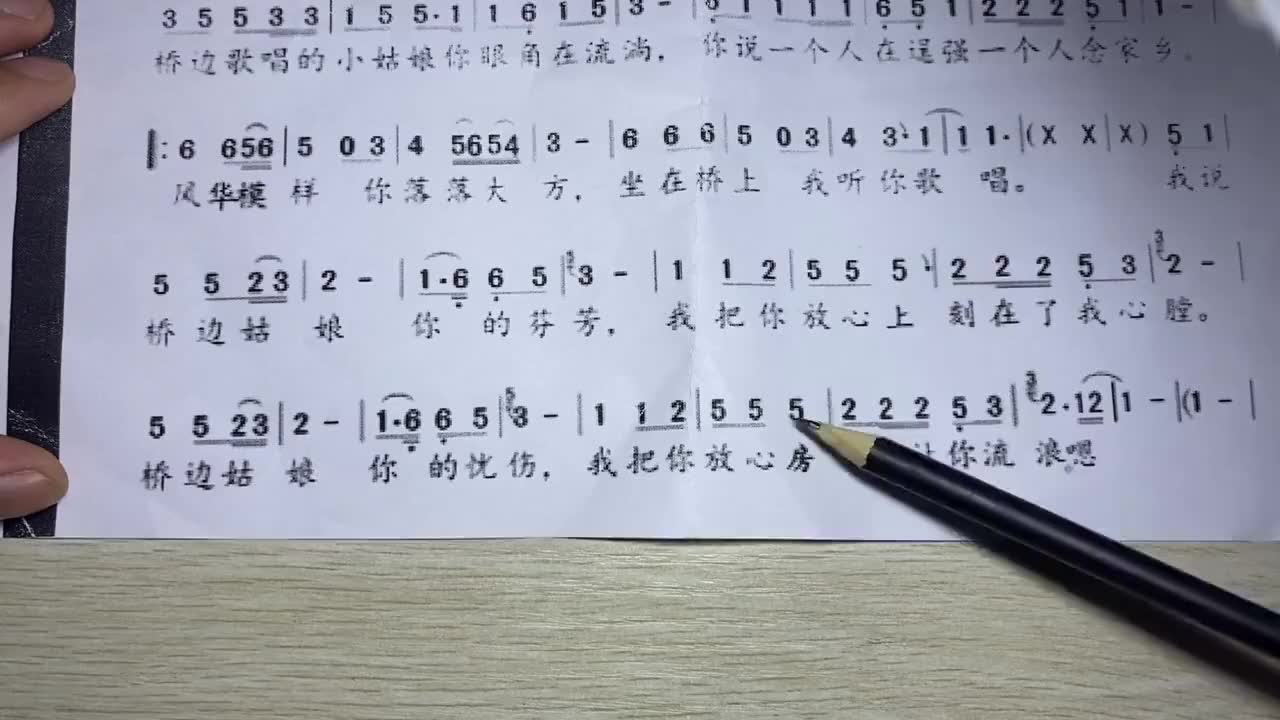 3 5 5 5 3 3 | 1 5 5·1 | 1 6 1 5 | 3 - | 5 1 1 1 1 | 6 5 1 | 2 2 2 5 1 | 1 - |
桥边歌唱的小姑娘你眼角在流淌，你说一个人在逞强一个人念家乡。
‖: 6 6 5 6 | 5 0 3 | 4 5 6 5 4 | 3 - | 6 6 6 | 5 0 3 | 4 3 1 | 1 1· | (X X | X) 5 1 |
风华模样 你落落大方，坐在桥上 我听你歌唱。 我说
5 5 2 3 | 2 - | 1·6 6 5 | 3 3 - | 1 1 2 | 5 5 5 | 2 2 2 5 3 | 3 2 - |
桥边姑娘 你的芬芳，我把你放心上 刻在了我心膛。
5 5 2 3 | 2 - | 1·6 6 5 | 5 3 - | 1 1 2 | 5 5 5 | 2 2 2 5 3 | 3 2·1 2 | 1 - | (1 - |
桥边姑娘 你的忧伤，我把你放心房 你流浪嗯。